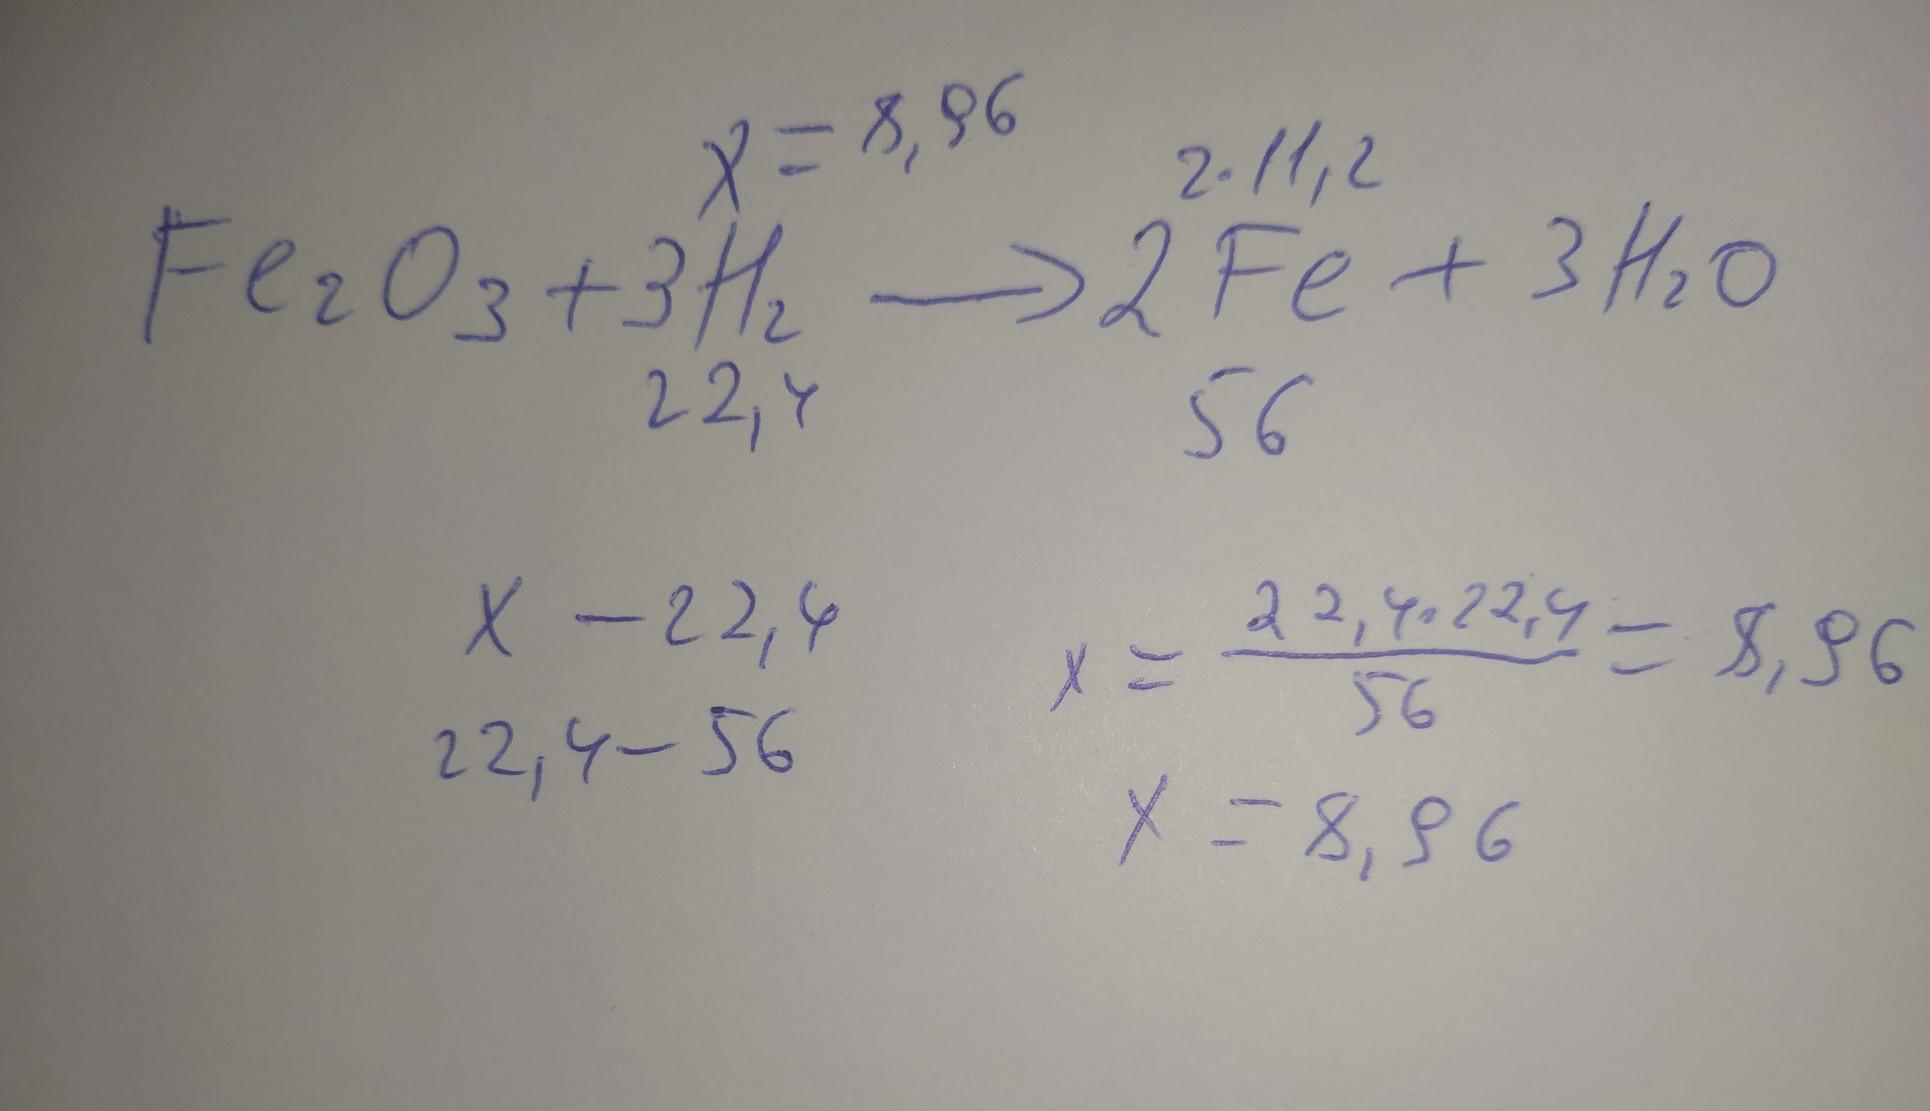 x = 8,96
2·11,2
Fe₂O₃ + 3H₂ → 2Fe + 3H₂O
22,4 56
x – 22,4
22,4 – 56
x = 22,4·22,4/56 = 8,96
x = 8,96